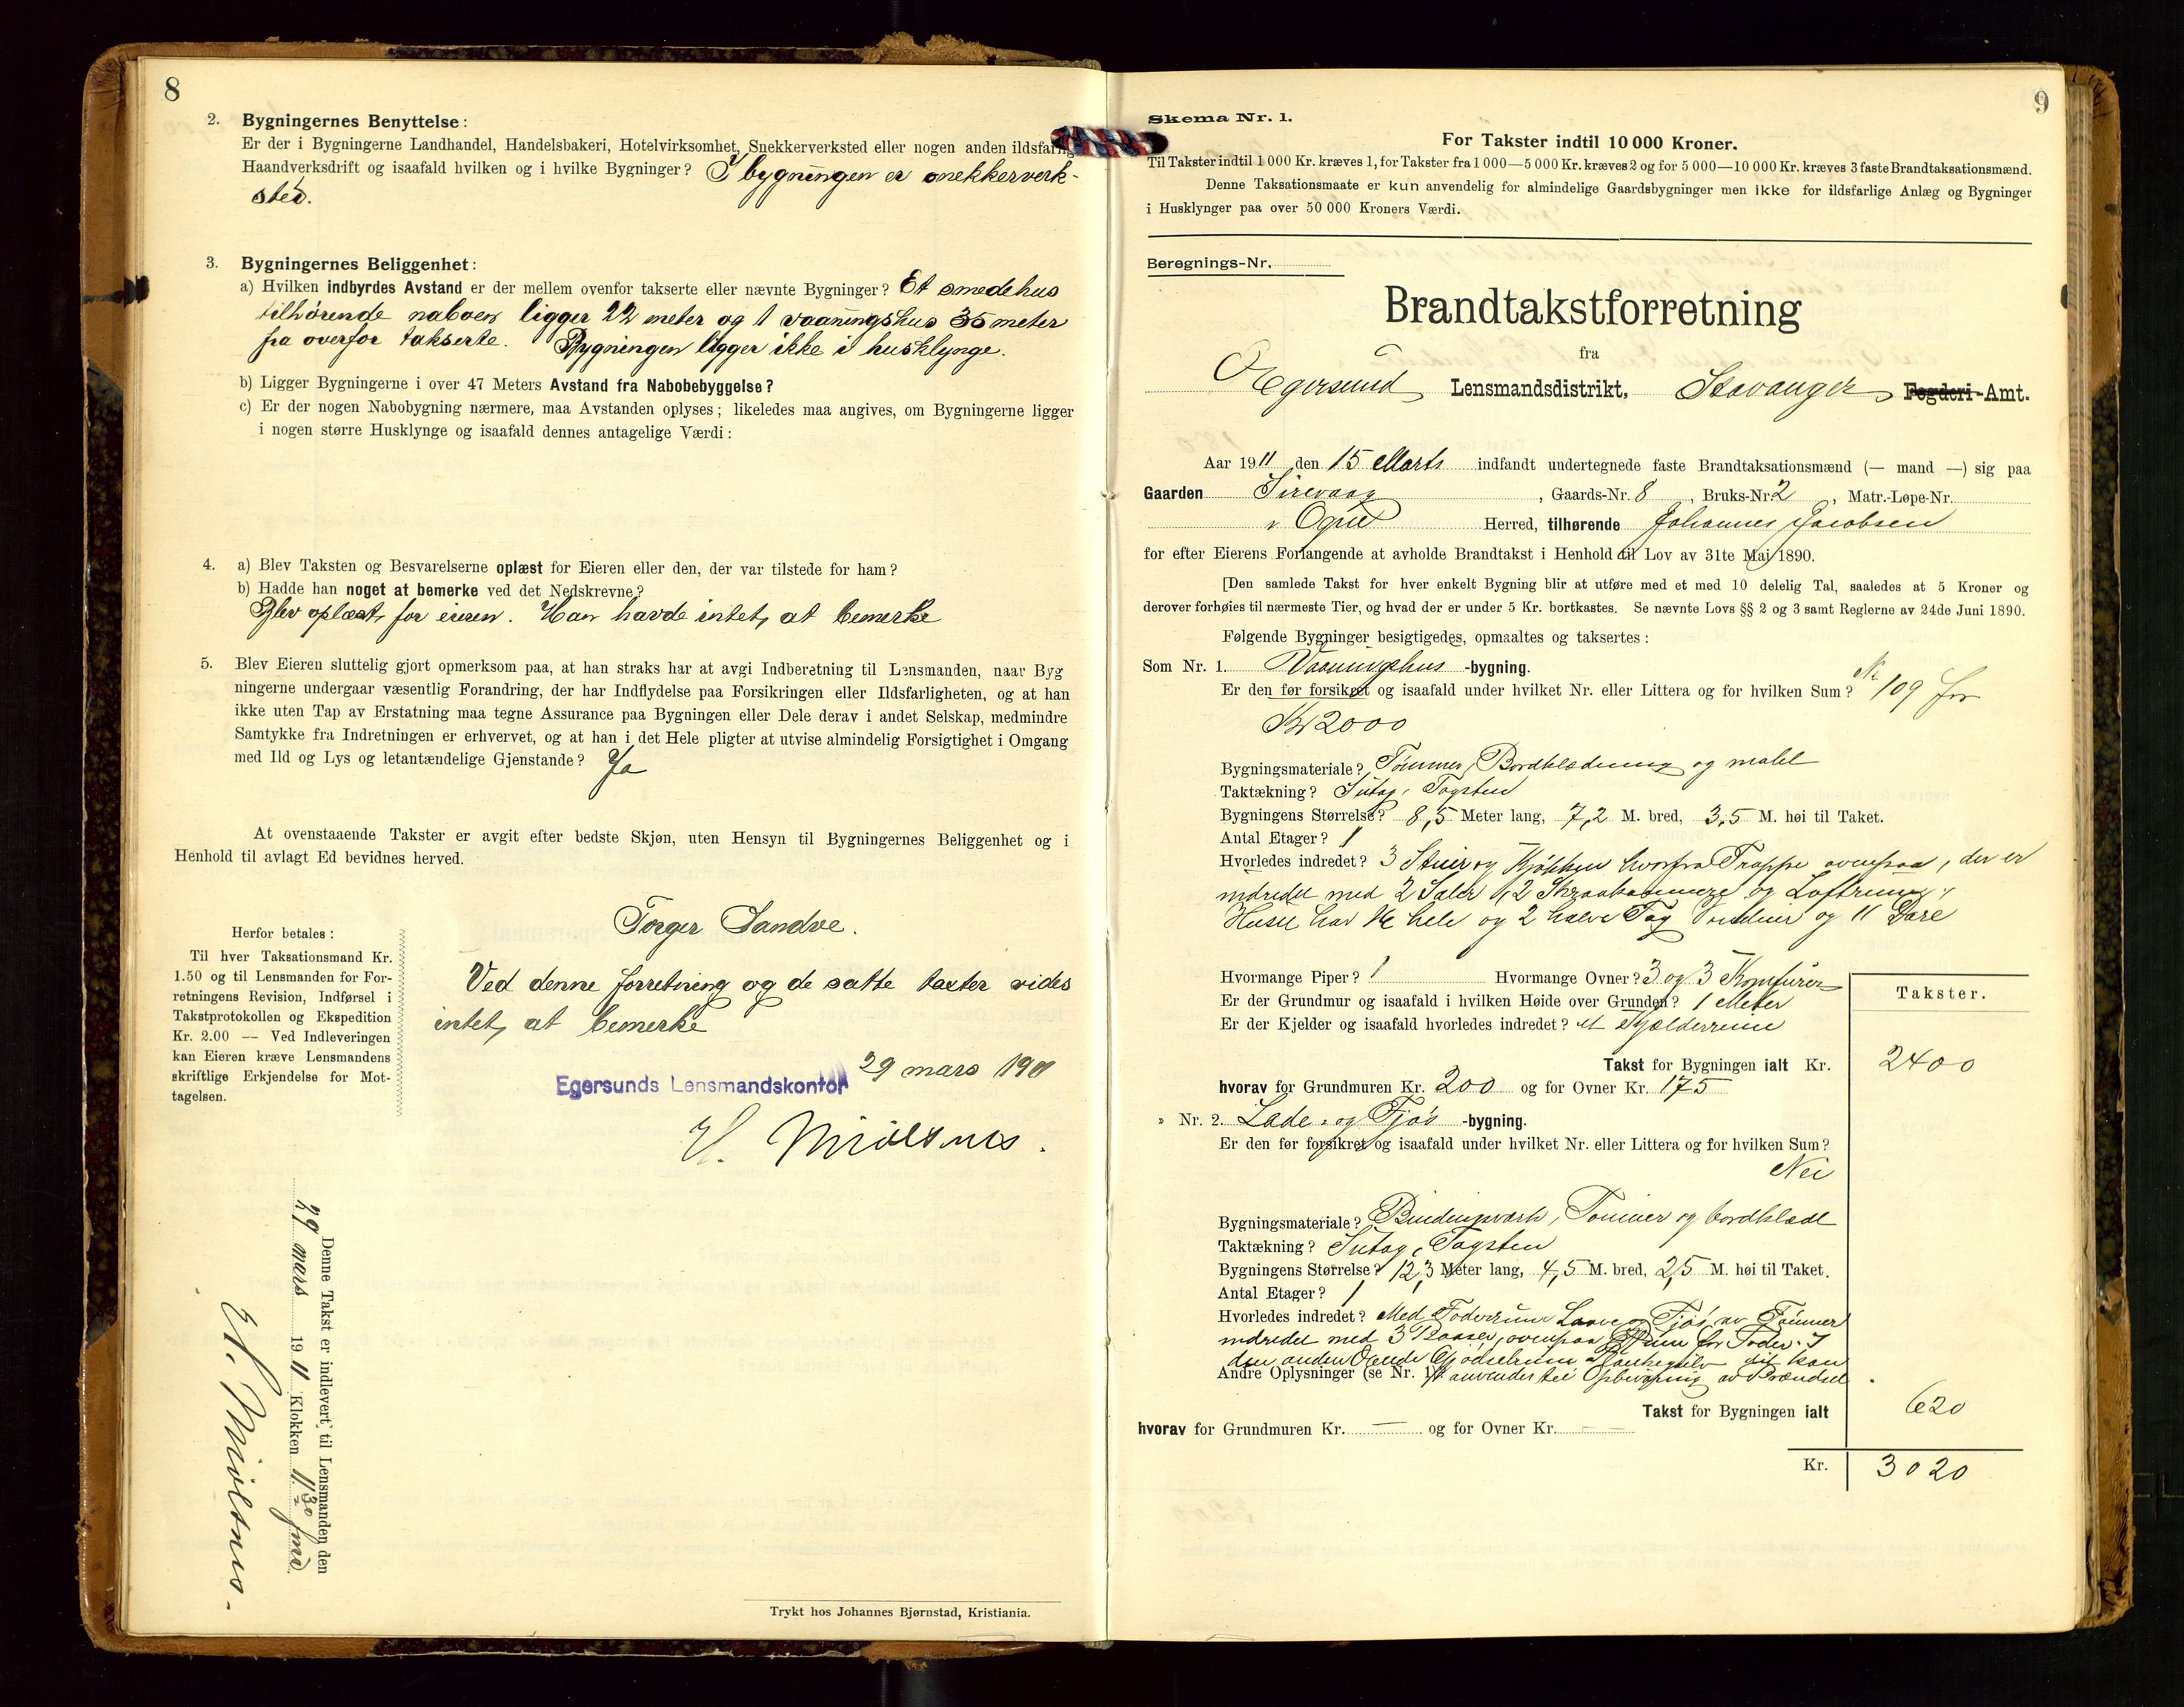 8
2. Bygningernes Benyttelse:
Er der i Bygningerne Landhandel, Handelsbakeri, Hotelvirksomhet, Snekkerverksted eller nogen anden ildsfarlig
Haandverksdrift og isaafald hvilken og i hvilke Bygninger? I bygningen er snekkerverk-
sted.
3. Bygningernes Beliggenhet:
a) Hvilken indbyrdes Avstand er der mellem ovenfor takserte eller nævnte Bygninger? Et smedehus
tilhørende naboen ligger 22 meter og 1 vaaningshus 35 meter
fra overfor takserte. Bygningen ligger ikke i husklynge.
b) Ligger Bygningerne i over 47 Meters Avstand fra Nabobebyggelse?
c) Er der nogen Nabobygning nærmere, maa Avstanden oplyses; likeledes maa angives, om Bygningerne ligger
i nogen større Husklynge og isaafald dennes antagelige Værdi:
4. a) Blev Taksten og Besvarelserne oplæst for Eieren eller den, der var tilstede for ham?
b) Hadde han noget at bemerke ved det Nedskrevne?
Blev oplæst for eieren. Han havde intet at bemerke
5. Blev Eieren sluttelig gjort opmerksom paa, at han straks har at avgi Indberetning til Lensmanden, naar Byg
ningerne undergaar væsentlig Forandring, der har Indflydelse paa Forsikringen eller Ildsfarligheten, og at han
ikke uten Tap av Erstatning maa tegne Assurance paa Bygningen eller Dele derav i andet Selskap, medmindre
Samtykke fra Indretningen er erhvervet, og at han i det Hele pligter at utvise almindelig Forsigtighet i Omgang
med Ild og Lys og letantændelige Gjenstande? Ja
At ovenstaaende Takster er avgit efter bedste Skjøn, uten Hensyn til Bygningernes Beliggenhet og i
Henhold til avlagt Ed bevidnes herved.
Torger Sandve.
Herfor betales:
Til hver Taksationsmand Kr.
1.50 og til Lensmanden for For-
retningens Revision, Indførsel i
Takstprotokollen og Ekspedition
Kr. 2.00 — Ved Indleveringen
kan Eieren kræve Lensmandens
skriftlige Erkjendelse for Mot-
tagelsen.
Ved denne forretning og de satte taxter vides
intet at bemerke
Egersunds Lensmandskontor 29 mars 1911
H. Mjølsnes.
Denne Takst er indlevert til Lensmanden den
29 mars 1911 Klokken 11 30 fmd.
H. Mjølsnes.
Trykt hos Johannes Bjørnstad, Kristiania.
9
Skema Nr. 1.
For Takster indtil 10 000 Kroner.
Til Takster indtil 1 000 Kr. kræves 1, for Takster fra 1 000—5 000 Kr. kræves 2 og for 5 000—10 000 Kr. kræves 3 faste Brandtaksationsmænd.
Denne Taksationsmaate er kun anvendelig for almindelige Gaardsbygninger men ikke for ildsfarlige Anlæg og Bygninger
i Husklynger paa over 50 000 Kroners Værdi.
Beregnings-Nr.
Brandtakstforretning
fra
Egersund Lensmandsdistrikt, Stavanger Fogderi-Amt.
Aar 1911 den 15 Marts indfandt undertegnede faste Brandtaksationsmænd (— mand —) sig paa
Gaarden Sirevaag, Gaards-Nr. 8, Bruks-Nr 2, Matr.-Løpe-Nr.
i Ogne Herred, tilhørende Johannes Jacobsen
for efter Eierens Forlangende at avholde Brandtakst i Henhold til Lov av 31te Mai 1890.
[Den samlede Takst for hver enkelt Bygning blir at utføre med et med 10 delelig Tal, saaledes at 5 Kroner og
derover forhøies til nærmeste Tier, og hvad der er under 5 Kr. bortkastes. Se nævnte Lovs §§ 2 og 3 samt Reglerne av 24de Juni 1890.
Følgende Bygninger besigtigedes, opmaaltes og taksertes:
Som Nr. 1. Vaaningshus -bygning.
Er den før forsikret og isaafald under hvilket Nr. eller Littera og for hvilken Sum? Nr 109 for
Kr 2000
Bygningsmateriale? Tømmer, Bordklædning og malet
Taktækning? Sutag, Tagsten
Bygningens Størrelse? 8,5 Meter lang, 7,2 M. bred, 3,5 M. høi til Taket.
Antal Etager? 1
Hvorledes indredet? 3 Stuer og Kjøkken hvorfra Trappe ovenpaa, der er
indredet med 2 Saler, 2 Skraakammere og Loftrum.
Huset har hele og 2 halve Fag Vinduer og 11 Døre
Hvormange Piper? 1 Hvormange Ovner? 3 og 3 Komfurer
Er der Grundmur og isaafald i hvilken Høide over Grunden? 1 Meter
Er der Kjelder og isaafald hvorledes indredet? et Kjælderrum
Takster.
Takst for Bygningen ialt Kr. 2400
hvorav for Grundmuren Kr. 200 og for Ovner Kr. 175
» Nr. 2. Lade- og Fjøs -bygning.
Er den før forsikret og isaafald under hvilket Nr. eller Littera og for hvilken Sum?
Nei
Bygningsmateriale? Bindingsværk, Tømmer og bordklædt
Taktækning? Sutag, Tagsten
Bygningens Størrelse? 12,3 Meter lang, 4,5 M. bred, 2,5 M. høi til Taket.
Antal Etager? 1
Hvorledes indredet? Med Foderrum Laave og Fjøs av Tømmer
indredet med 3 Baaser, ovenpaa Rum for Foder. I
den anden Ende Gjødselrum kan
Andre Oplysninger (se Nr. 1)? anvendes til Opbevaring av Brændsel.
Takst for Bygningen ialt 620
hvorav for Grundmuren Kr. — og for Ovner Kr. —
Kr. 3020